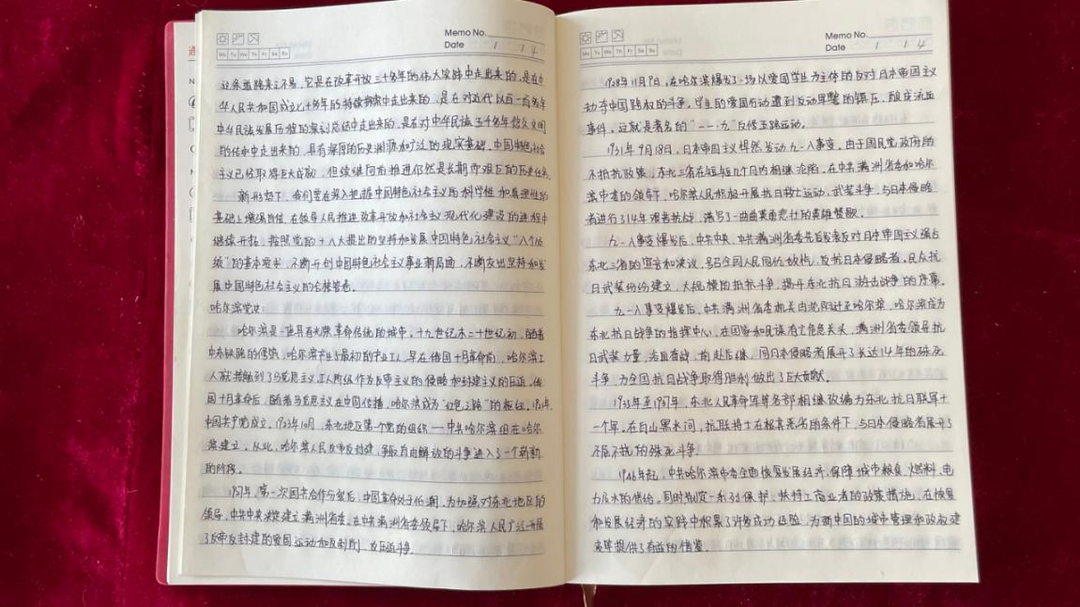 Memo No.
Date 1 14
Mo Tu We Th Fr Sa Su
这条道路来之不易，它是在改革开放三十多年的伟大实践中走出来的，是在中
华人民共和国成立七十多年的持续探索中走出来的，是在对近代以来一百多年
中华民族发展历程的深刻总结中走出来的，是在对中华民族五千多年悠久文明
的传承中走出来的，具有深厚的历史渊源和广泛的现实基础。中国特色社会
主义已经取得巨大成就，但续继向前推进仍然是长期而艰巨的历史任务。
新形势下，我们要在深入把握中国特色社会主义的科学性和真理性的
基础上增强自信，在领导人民推进改革开放和社会主义现代化建设的进程中
继续开拓，按照党的十八大提出的坚持和发展中国特色社会主义“八个必
须”的基本要求，不断开创中国特色社会主义事业新局面，不断交出坚持和发
展中国特色社会主义的合格答卷。
哈尔滨党史：
哈尔滨是一座具有光荣革命传统的城市。十九世纪末二十世纪初，随着
中东铁路的修筑，哈尔滨产业最初的产业工人。早在俄国十月革命前，哈尔滨工
人就接触到了马克思主义，工人阶级作为反帝主义的侵略和封建主义的压迫。俄
国十月革命后，随着马克思主义在中国传播，哈尔滨成为“红色之路”的枢纽。
中国共产党成立，1923年10月，东北地区第一个党的组织——中共哈尔滨组在哈尔
滨建立，从此，哈尔滨人民反帝反封建，争取自由解放的斗争进入了一个崭新
的阶段。
1927年，第一次国共合作破裂后，中国革命处于低潮，为加强对东北地区的
领导，中共中央决定建立满洲省委。在中共满洲省委领导下，哈尔滨人民广泛开展
了反帝反封建的爱国运动和反剥削、反压迫斗争。
Memo No.
Date 1 14
Mo Tu We Th Fr Sa Su
1928年11月9日，在哈尔滨爆发了一场以爱国学生为主体的反对日本帝国主义
劫夺中国路权的斗争。学生的爱国行动遭到反动军警的镇压，酿成流血
事件，这就是著名的“一一·九”反修五路运动。
1931年9月18日，日本帝国主义悍然发动九一八事变，由于国民党政府的
不抵抗政策，东北三省在短短几个月内相继沦陷，在中共满洲省委和哈尔
滨市委的领导下，哈尔滨人民积极开展抗日救亡运动，武装斗争，与日本侵略
者进行了14年艰苦抗战，谱写了一曲曲英勇悲壮的英雄赞歌。
九一八事变爆发后，中共中央、中共满洲省委先后发表反对日本帝国主义强占
东北三省的宣言和决议，号召全国人民同仇敌忾，反抗日本侵略者，民众抗
日武装纷纷建立，大规模的抵抗斗争，揭开东北抗日游击战争的序幕。
九一八事变爆发后，中共满洲省委机关由沈阳迁至哈尔滨，哈尔滨成为
东北抗日战争的指挥中心，在国家和民族存亡危急关头，满洲省委领导抗
日武装力量，浴血奋战，前赴后继，同日本侵略者展开了长达14年的殊死
斗争，为全国抗日战争取得胜利做出了巨大贡献。
1933年至1937年，东北人民革命军等各部相继改编为东北抗日联军十
一个军，在白山黑水间，抗联将士在极其恶劣的条件下，与日本侵略者展开了
不屈不挠的殊死斗争。
1946年起，中共哈尔滨市委全面恢复发展经济，保障城市粮食、燃料、电
力、水的供给。同时制定一系列保护、扶持工商业者的政策措施，在恢复
和发展经济的实践中积累了许多成功经验，为新中国的城市管理和政权建
设等提供了有益的借鉴。